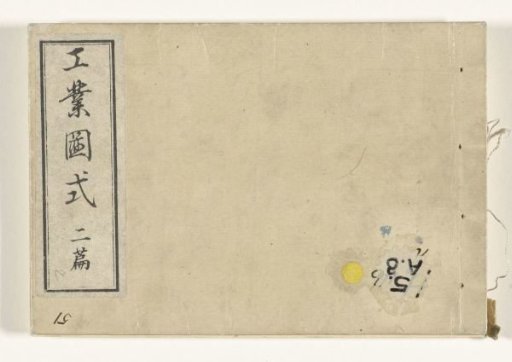 工業圖式 二篇
51
5.8
A.8